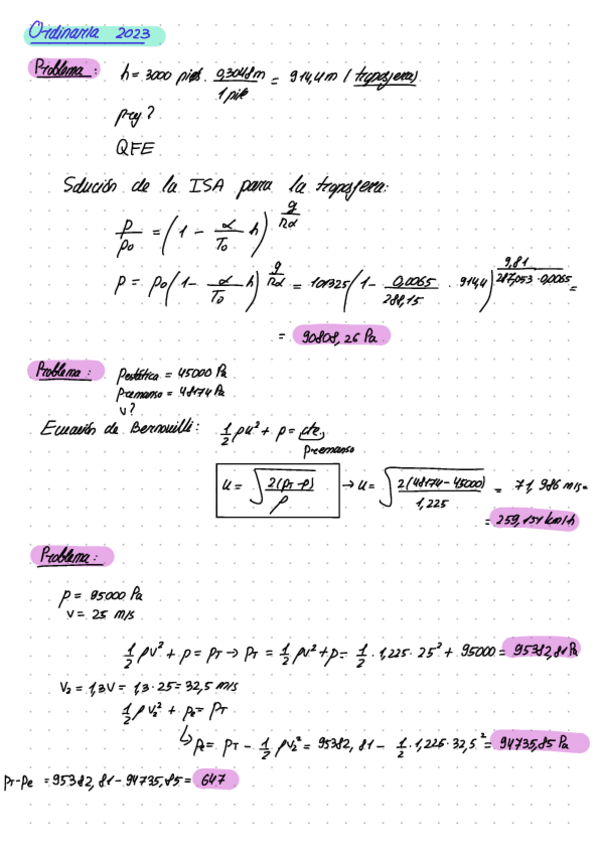 Ordinaria 2023
Problema: h = 3000 pies · 0,3048 m / 1 pie = 914,4 m (troposfera)
p ay?
QFE
Solución de la ISA para la troposfera:
p/p0 = (1 - α/T0 h)^(g/Rα)
p = p0 (1 - α/T0 h)^(g/Rα) = 101325 (1 - 0,0065/288,15 · 914,4)^(9,81/287,053·0,0065) =
= 90808,26 Pa
Problema: pestática = 45000 Pa
premanso = 48174 Pa
v?
Ecuación de Bernouilli: 1/2 ρu² + p = cte.
premanso
u = √(2(pT-p)/ρ) → u = √(2(48174-45000)/1,225) = 71,986 m/s =
= 259,151 km/h
Problema:
p = 95000 Pa
v = 25 m/s
1/2 ρv² + p = pT → pT = 1/2 ρv² + p = 1/2 · 1,225 · 25² + 95000 = 95382,81 Pa
v2 = 1,3v = 1,3 · 25 = 32,5 m/s
1/2 ρv2² + pe = pT
↳ pe = pT - 1/2 ρv2² = 95382,81 - 1/2 · 1,225 · 32,5² = 94735,85 Pa
pT-pe = 95382,81 - 94735,85 = 647